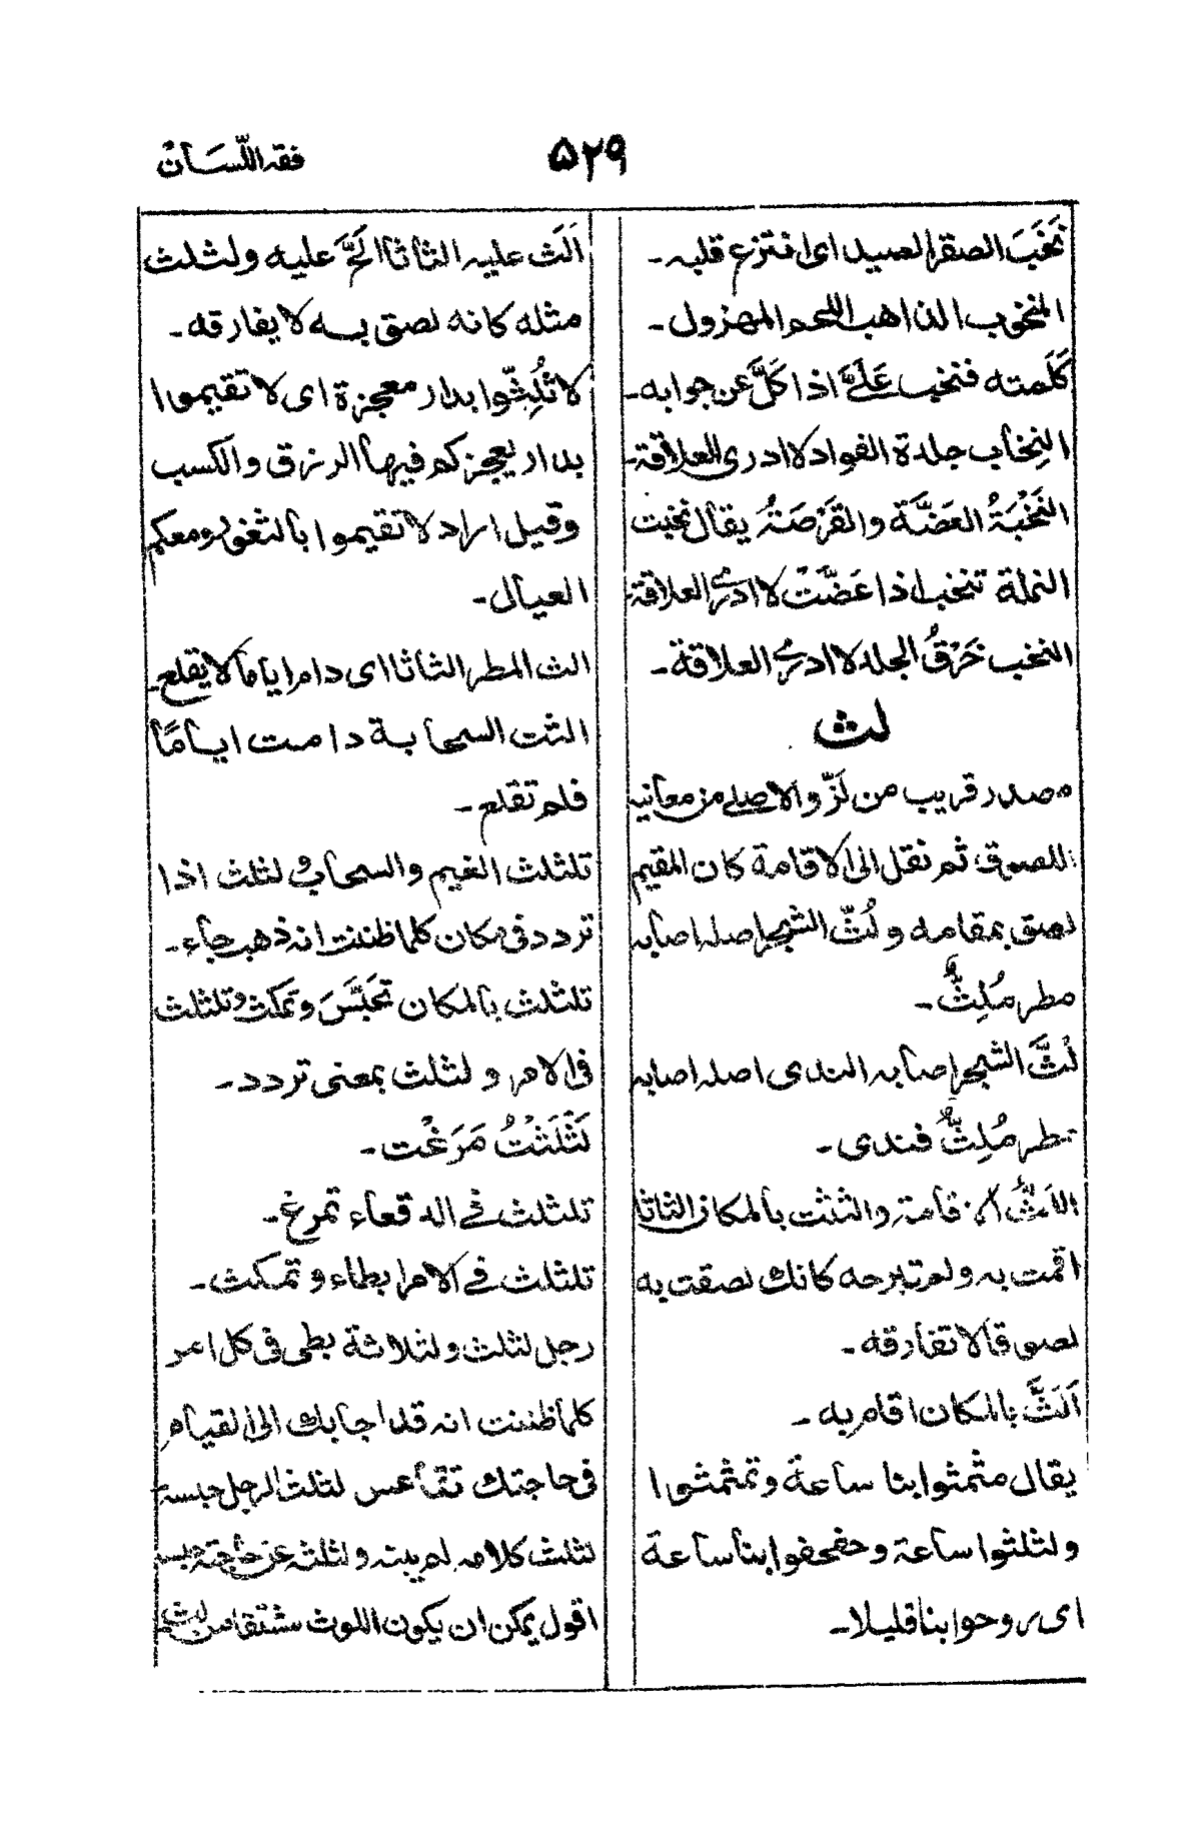 فقه اللّسَان
۵۲۹
نَخَبَ الصقر الصيد ای انتزع قلبه۔
المنخوب الذاهب اللحم المهزول۔
كَلَمته فنخب عَلَیَّ اذا كَلَّ عن جوابه۔
النِخاب جلدة الفواد لا ادری العلاقة۔
النَخْبَةُ العَضَّة والقَرْصَةُ يقال نخبت
النملة تنخب اذا عَضَّتْ لا ادری العلاقة۔
النخب خَرْقُ الجلد لا ادری العلاقة۔
لث
مصدر قريب من لَزّ والاصلے من معانيه
اللصوق ثم نقل الى الاقامة كان المقيم
لصق بمقامه و لُثّ الشجر اصله اصابه
مطر مُلِثٌّ۔
لُثَّ الشجر اصابه الندى اصله اصابه
مطر مُلِثٌّ فندى۔
اللَثُّ الاقامة والثثت بالمكان الثاثا
اقمت به ولم تبرحه كانك لصقت به
لصوقا لا تفارقه۔
اَلَثَّ بالمكان اقام به۔
يقال مثمثوا بنا ساعة وتمثمثوا
ولثلثوا ساعة وحفحفوا بنا ساعة
ای روحوا بنا قليلا۔
اَلَث عليه الثاثا اَلَحَّ عليه ولثلث
مثله كانه لصق به لا يفارقه۔
لا تُلِثّوا بدار معجزة ای لا تقيموا
بدار يعجزكم فيها الرزق والكسب
وقيل اراد لا تقيموا بالثغر ومعكم
العيال۔
الث المطر الثاثا ای دام اياما لا يقلع۔
الثت السحابة دامت ايامًا
فلم تقلع۔
تلثلث الغيم والسحاب و لثلث اذا
تردد فی مكان كلما ظننت انه ذهب جاء۔
تلثلث بالمكان تَحَبَّسَ وتمكث وتلثلث
فی الامر و لثلث بمعنى تردد۔
لَثْلَثْتُ مَرَغْت۔
تلثلث فے الدقعاء تمرغ۔
تلثلث فے الامر ابطاء وتمكث۔
رجل لثلث ولثلاثة بطی فی كل امر
كلما ظننت انه قد اجابك الى القيام
فی حاجتك تقاعس لثلث الرجل حبسه
لثلث كلامه لم يبنه ولثلثه عن حاجته حبسه
اقول يمكن ان يكون اللوث مشتقا من لث